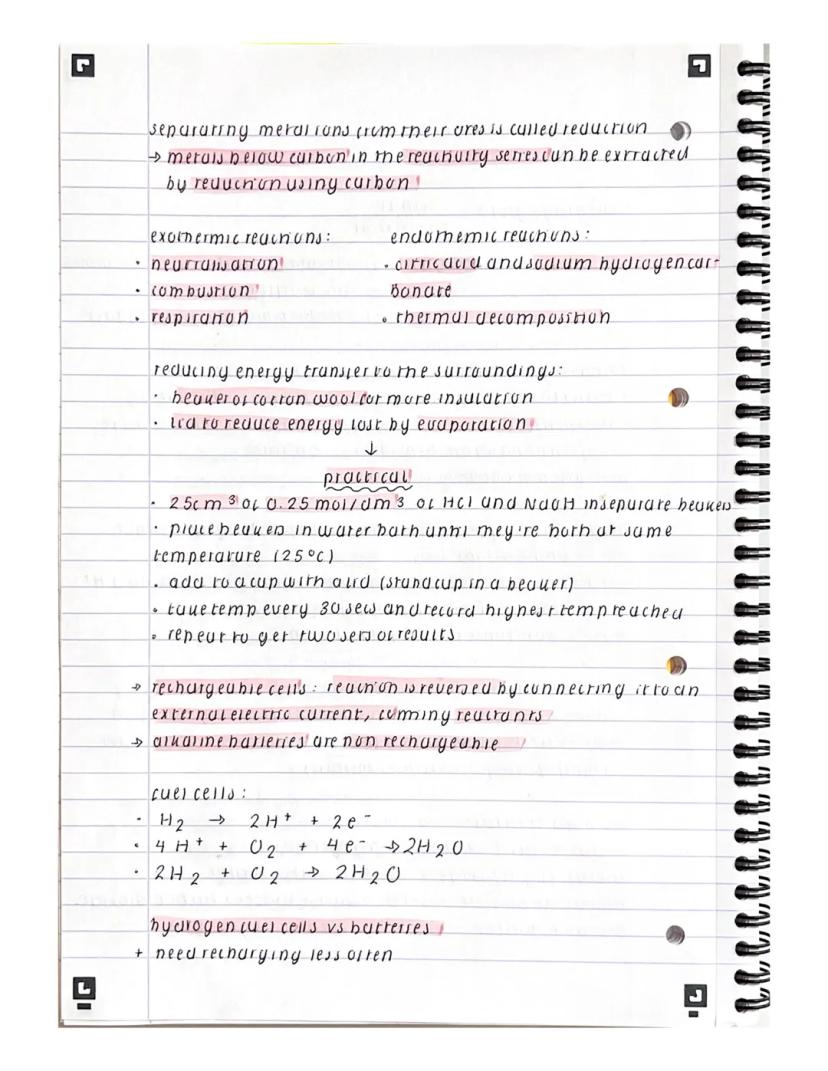 separating metal ions from their ores is called reduction
→ metals below carbon in the reactivity series can be extracted
by reduction using carbon
exothermic reactions: endothemic reactions:
· neutralisation · citric acid and sodium hydrogen car-
· combustion bonate
· respiration · thermal decomposition
reducing energy transfer to the surroundings:
· beaker of cotton wool for more insulation
· lid to reduce energy lost by evaporation
↓
practical
· 25cm³ of 0.25 mol/dm³ of HCl and NaOH in separate beakers
· place beakers in water bath until they're both at same
temperature (25°C)
· add to a cup with a lid (stand cup in a beaker)
· take temp every 30 secs and record highest temp reached
· repeat to get two sets of results
→ rechargeable cells: reaction is reversed by connecting it to an
external electric current, forming reactants
→ alkaline batteries are non rechargeable
fuel cells:
· H₂ → 2H⁺ + 2e⁻
· 4H⁺ + O₂ + 4e⁻ → 2H₂O
· 2H₂ + O₂ → 2H₂O
hydrogen fuel cells vs batteries
+ need recharging less often